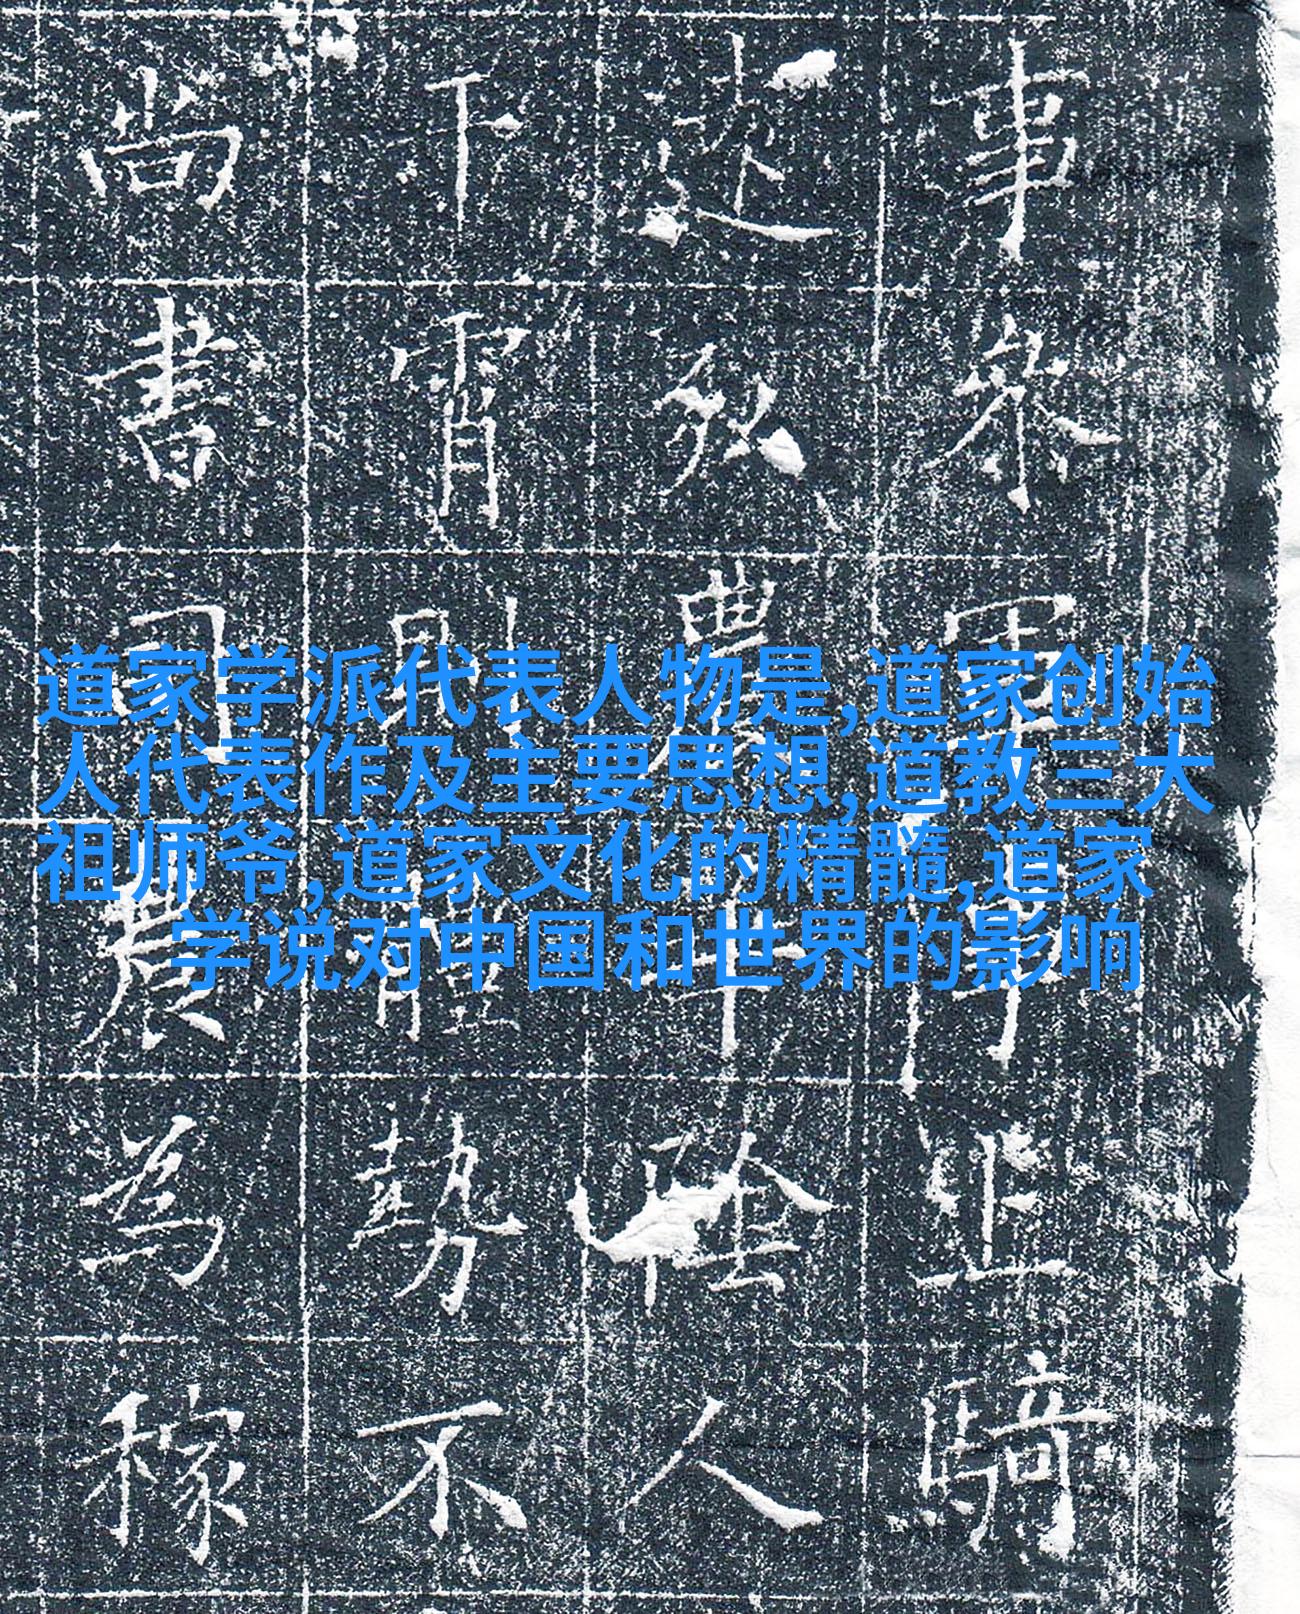 道家学派代表人物是,道家创始
人代表作及主要思想,道教三大
祖师爷,道家文化的精髓,道家
学说对中国和世界的影响
事參軍騎
於人
下霄體勢不
尚書司農為稼